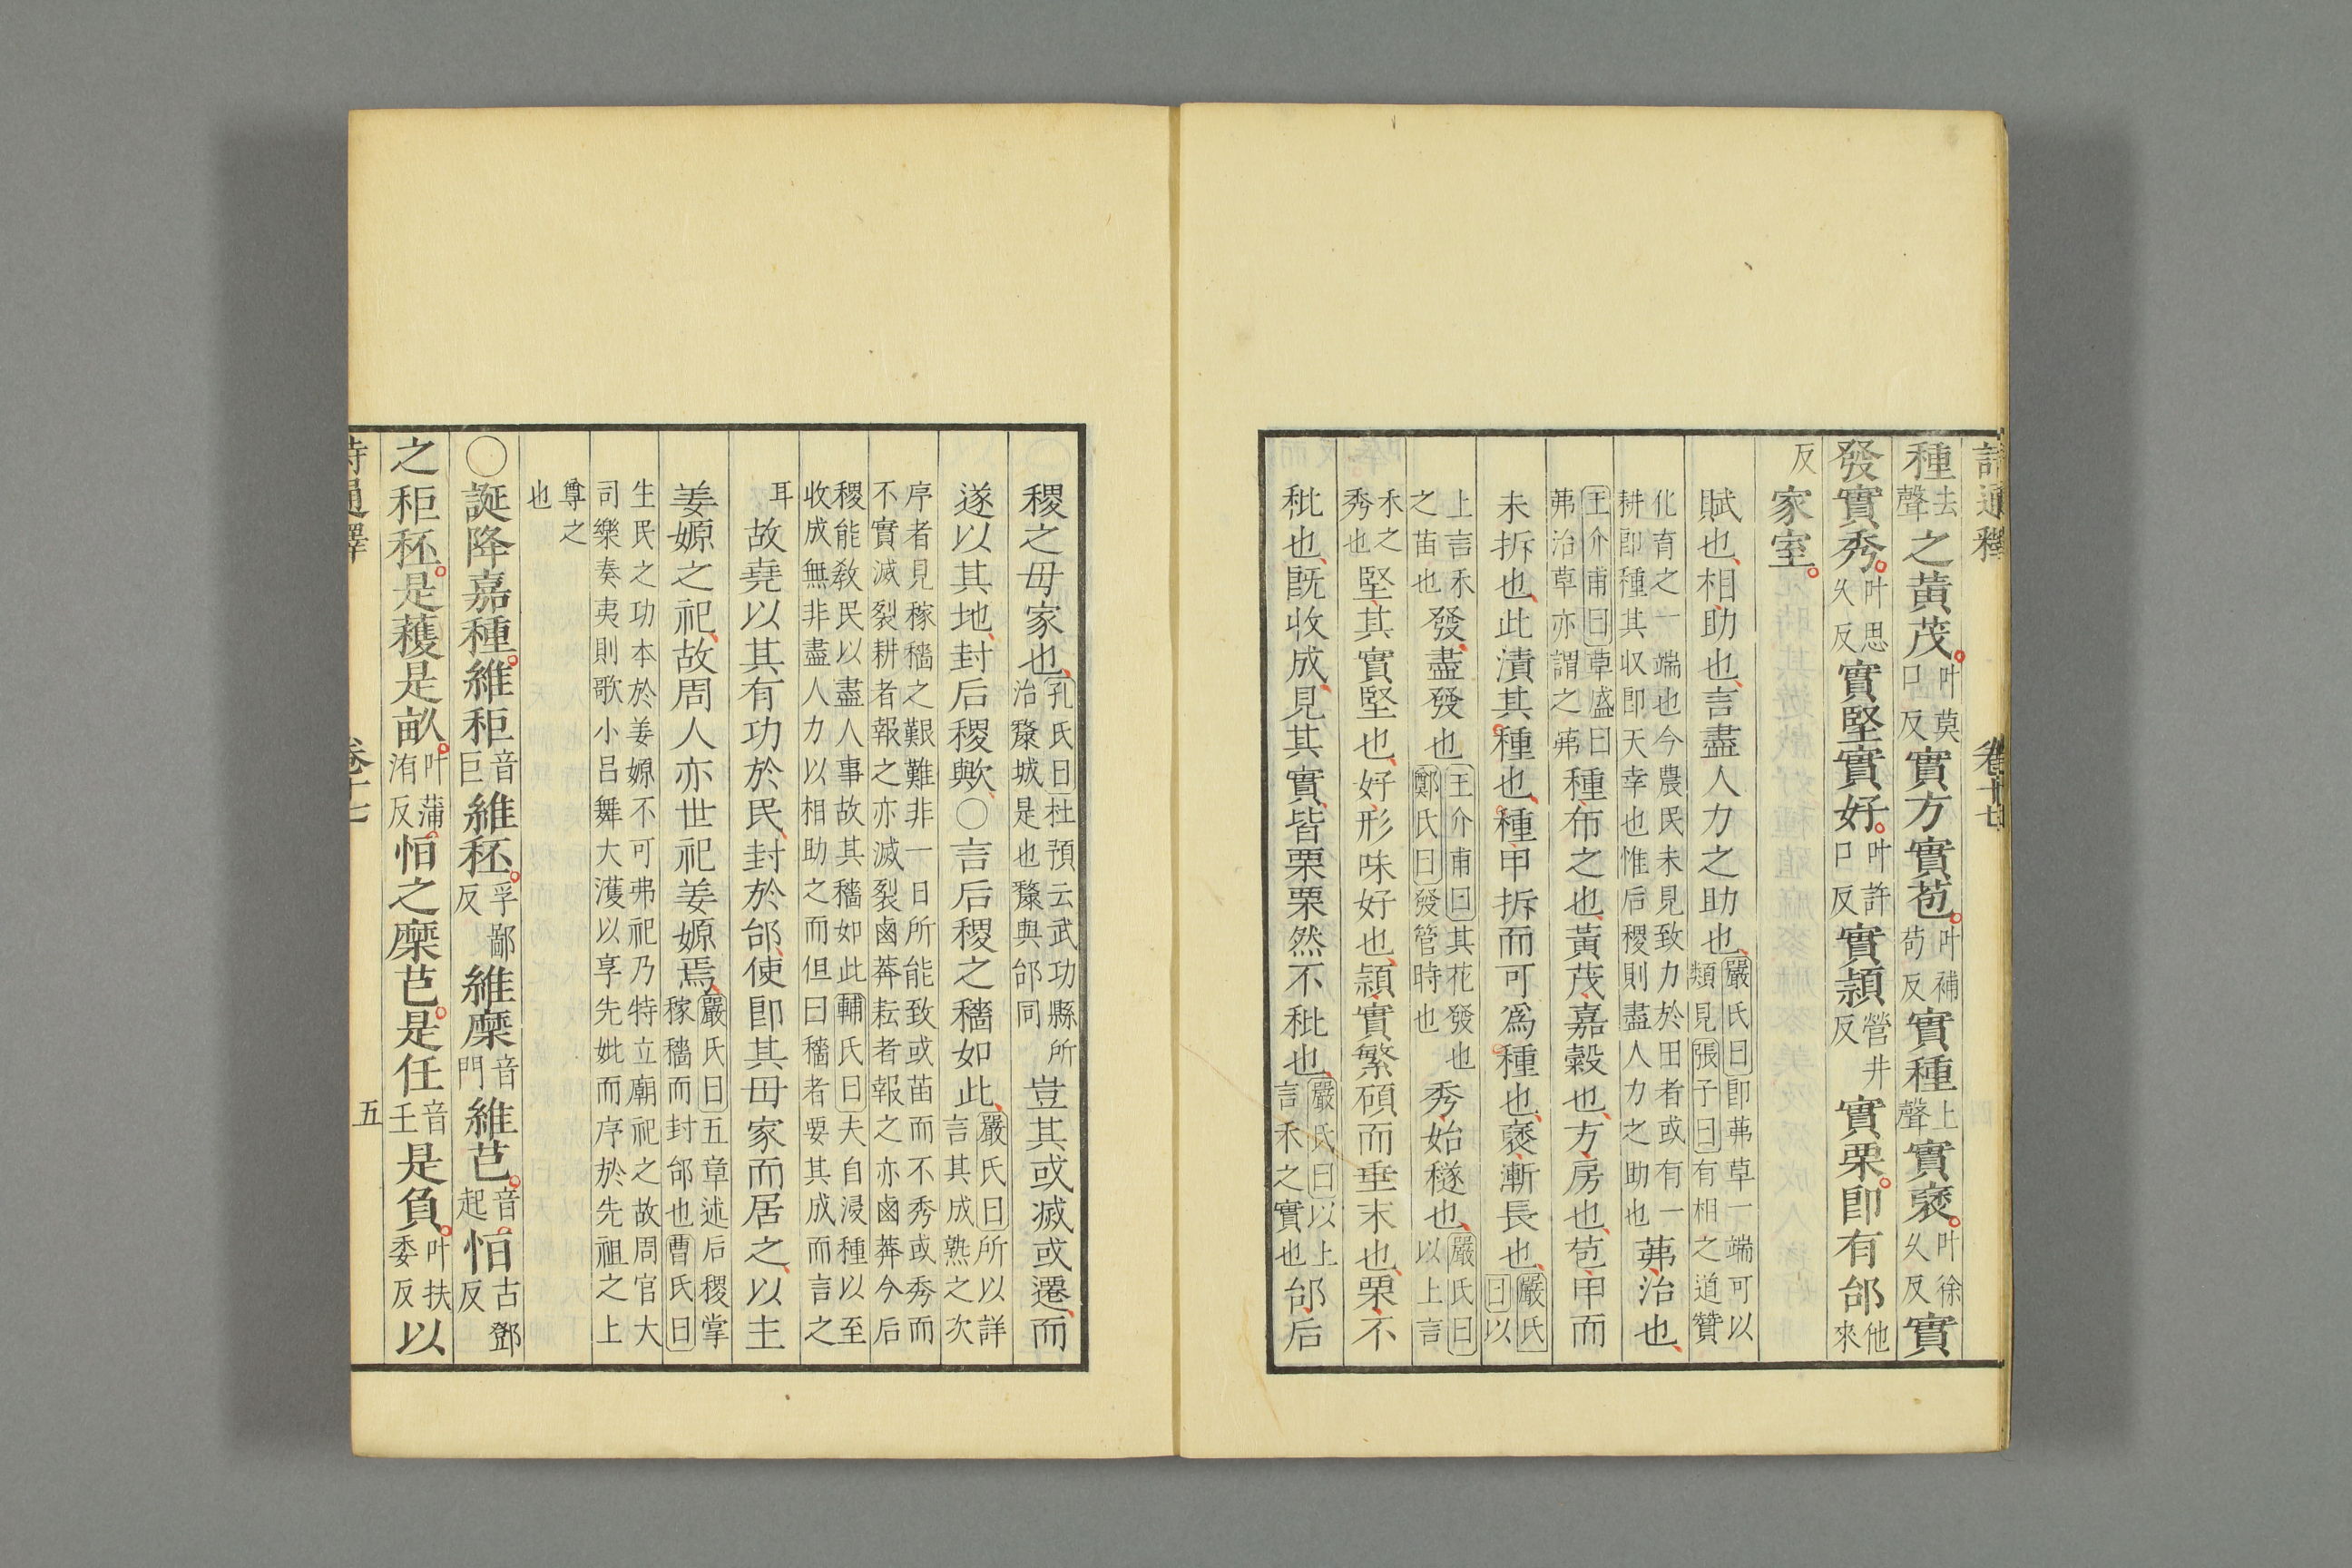 詩通釋 卷十七
種去聲之黃茂叶莫口反實方實苞叶補苟反實種上聲實褎叶徐久反實
發實秀叶思久反實堅實好叶許口反實穎營井反實栗卽有邰他來
反家室
賦也相助也言盡人力之助也嚴氏曰卽茀草一端可以類見張子曰有相之道贊
化育之一端也今農民未見致力於田者或有一耕卽種其収卽天幸也惟后稷則盡人力之助也茀治也
王介甫曰草盛曰茀治草亦謂之茀種布之也黃茂嘉穀也方房也苞甲而
未拆也此漬其種也種甲拆而可爲種也褎漸長也嚴氏曰以
上言禾之苗也發盡發也王介甫曰其花發也鄭氏曰發管時也秀始穟也嚴氏曰以上言
禾之秀也堅其實堅也好形味好也穎實繁碩而垂末也栗不
秕也旣收成見其實皆栗栗然不秕也嚴氏曰以上言禾之實也邰后
稷之母家也孔氏曰杜預云武功縣所治斄城是也斄與邰同豈其或滅或遷而
遂以其地封后稷歟○言后稷之穡如此嚴氏曰所以詳言其成熟之次
序者見稼穡之艱難非一日所能致或苗而不秀或秀而不實滅裂耕者報之亦滅裂鹵莽耘者報之亦鹵莽今后
稷能敎民以盡人事故其穡如此輔氏曰夫自浸種以至收成無非盡人力以相助之而但曰穡者要其成而言之
耳故堯以其有功於民封於邰使卽其母家而居之以主
姜嫄之祀故周人亦世祀姜嫄焉嚴氏曰五章述后稷掌稼穡而封邰也曹氏曰
生民之功本於姜嫄不可弗祀乃特立廟祀之故周官大司樂奏夷則歌小呂舞大濩以享先妣而序於先祖之上
尊之也
○誕降嘉種維秬音巨維秠孚鄙反維穈音門維芑音起恒古鄧反
之秬秠是穫是畝叶蒲洧反恒之穈芑是任音壬是負叶扶委反以
詩通釋 卷十七 五